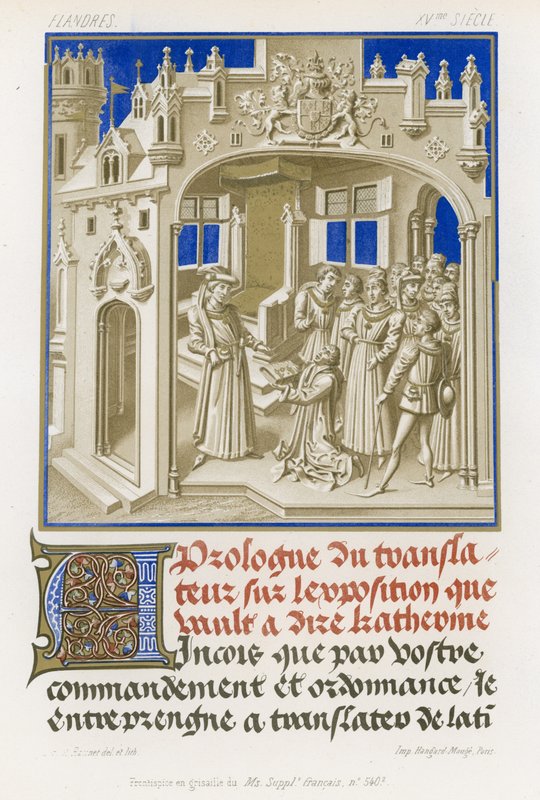 FLANDRES.
XVme SIÈCLE
Prologue du transla=
teur sur lexposition que
vault a dire katherine
Aincois que par vostre
commandement et ordonnance / Je
entreprengne a translater de lati
del. et lith.
Imp. Hangard-Maugé, Paris
Frontispice en grisaille du Ms. Suppl.t Français, n.º 540².